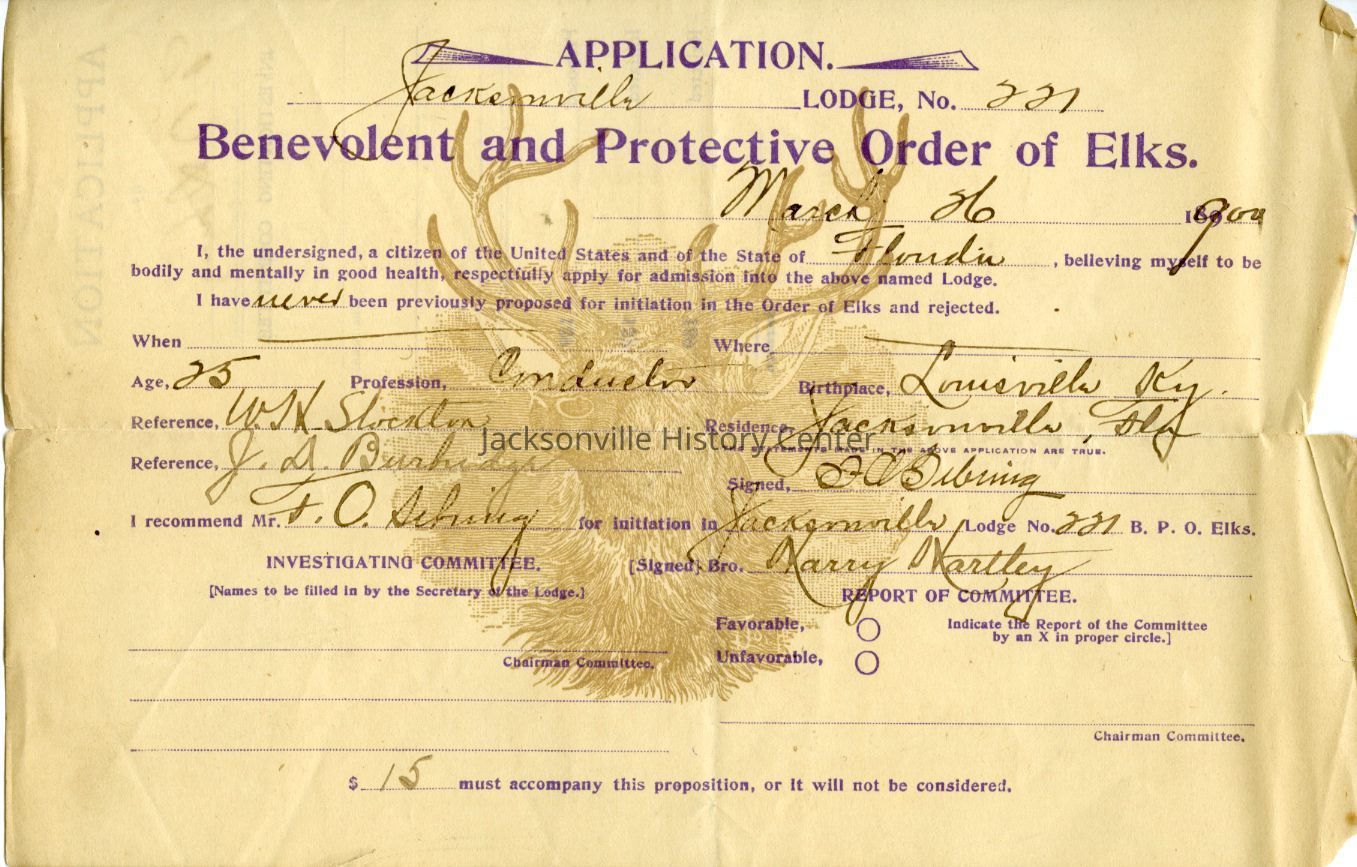 APPLICATION.
Jacksonville LODGE, No. 221
Benevolent and Protective Order of Elks.
March 26 1900
I, the undersigned, a citizen of the United States and of the State of Florida, believing myself to be
bodily and mentally in good health, respectfully apply for admission into the above named Lodge.
I have never been previously proposed for initiation in the Order of Elks and rejected.
When Where
Age, 25 Profession, Conductor Birthplace, Louisville Ky.
Reference, W. H. Stockton Residence, Jacksonville, Fla
Jacksonville History Center
STATEMENTS MADE IN THE ABOVE APPLICATION ARE TRUE.
Reference, J. D. Burbridge Signed, F O
I recommend Mr. F. O. for initiation in Jacksonville Lodge No. 221 B. P. O. Elks.
INVESTIGATING COMMITTEE. [Signed] Bro. Harry Hartley
[Names to be filled in by the Secretary of the Lodge.] REPORT OF COMMITTEE.
Favorable, Indicate the Report of the Committee
by an X in proper circle.]
Unfavorable,
Chairman Committee.
Chairman Committee.
$ 15 must accompany this proposition, or it will not be considered.
APPLICATION